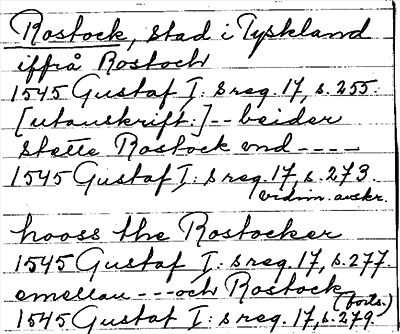 Rostock, stad i Tyskland
iffrå Rostoch
1545 Gustaf I: s reg. 17, s. 255.
[utanskrift:] -- beider
Stette Rostock vnd ----
1545 Gustaf I: s reg. 17, s. 273.
vidim. avskr.
hooss the Rostocker
1545 Gustaf I: s reg. 17, s. 277.
emellan --- och Rostock
(forts.)
1545 Gustaf I: s reg. 17, s. 279.